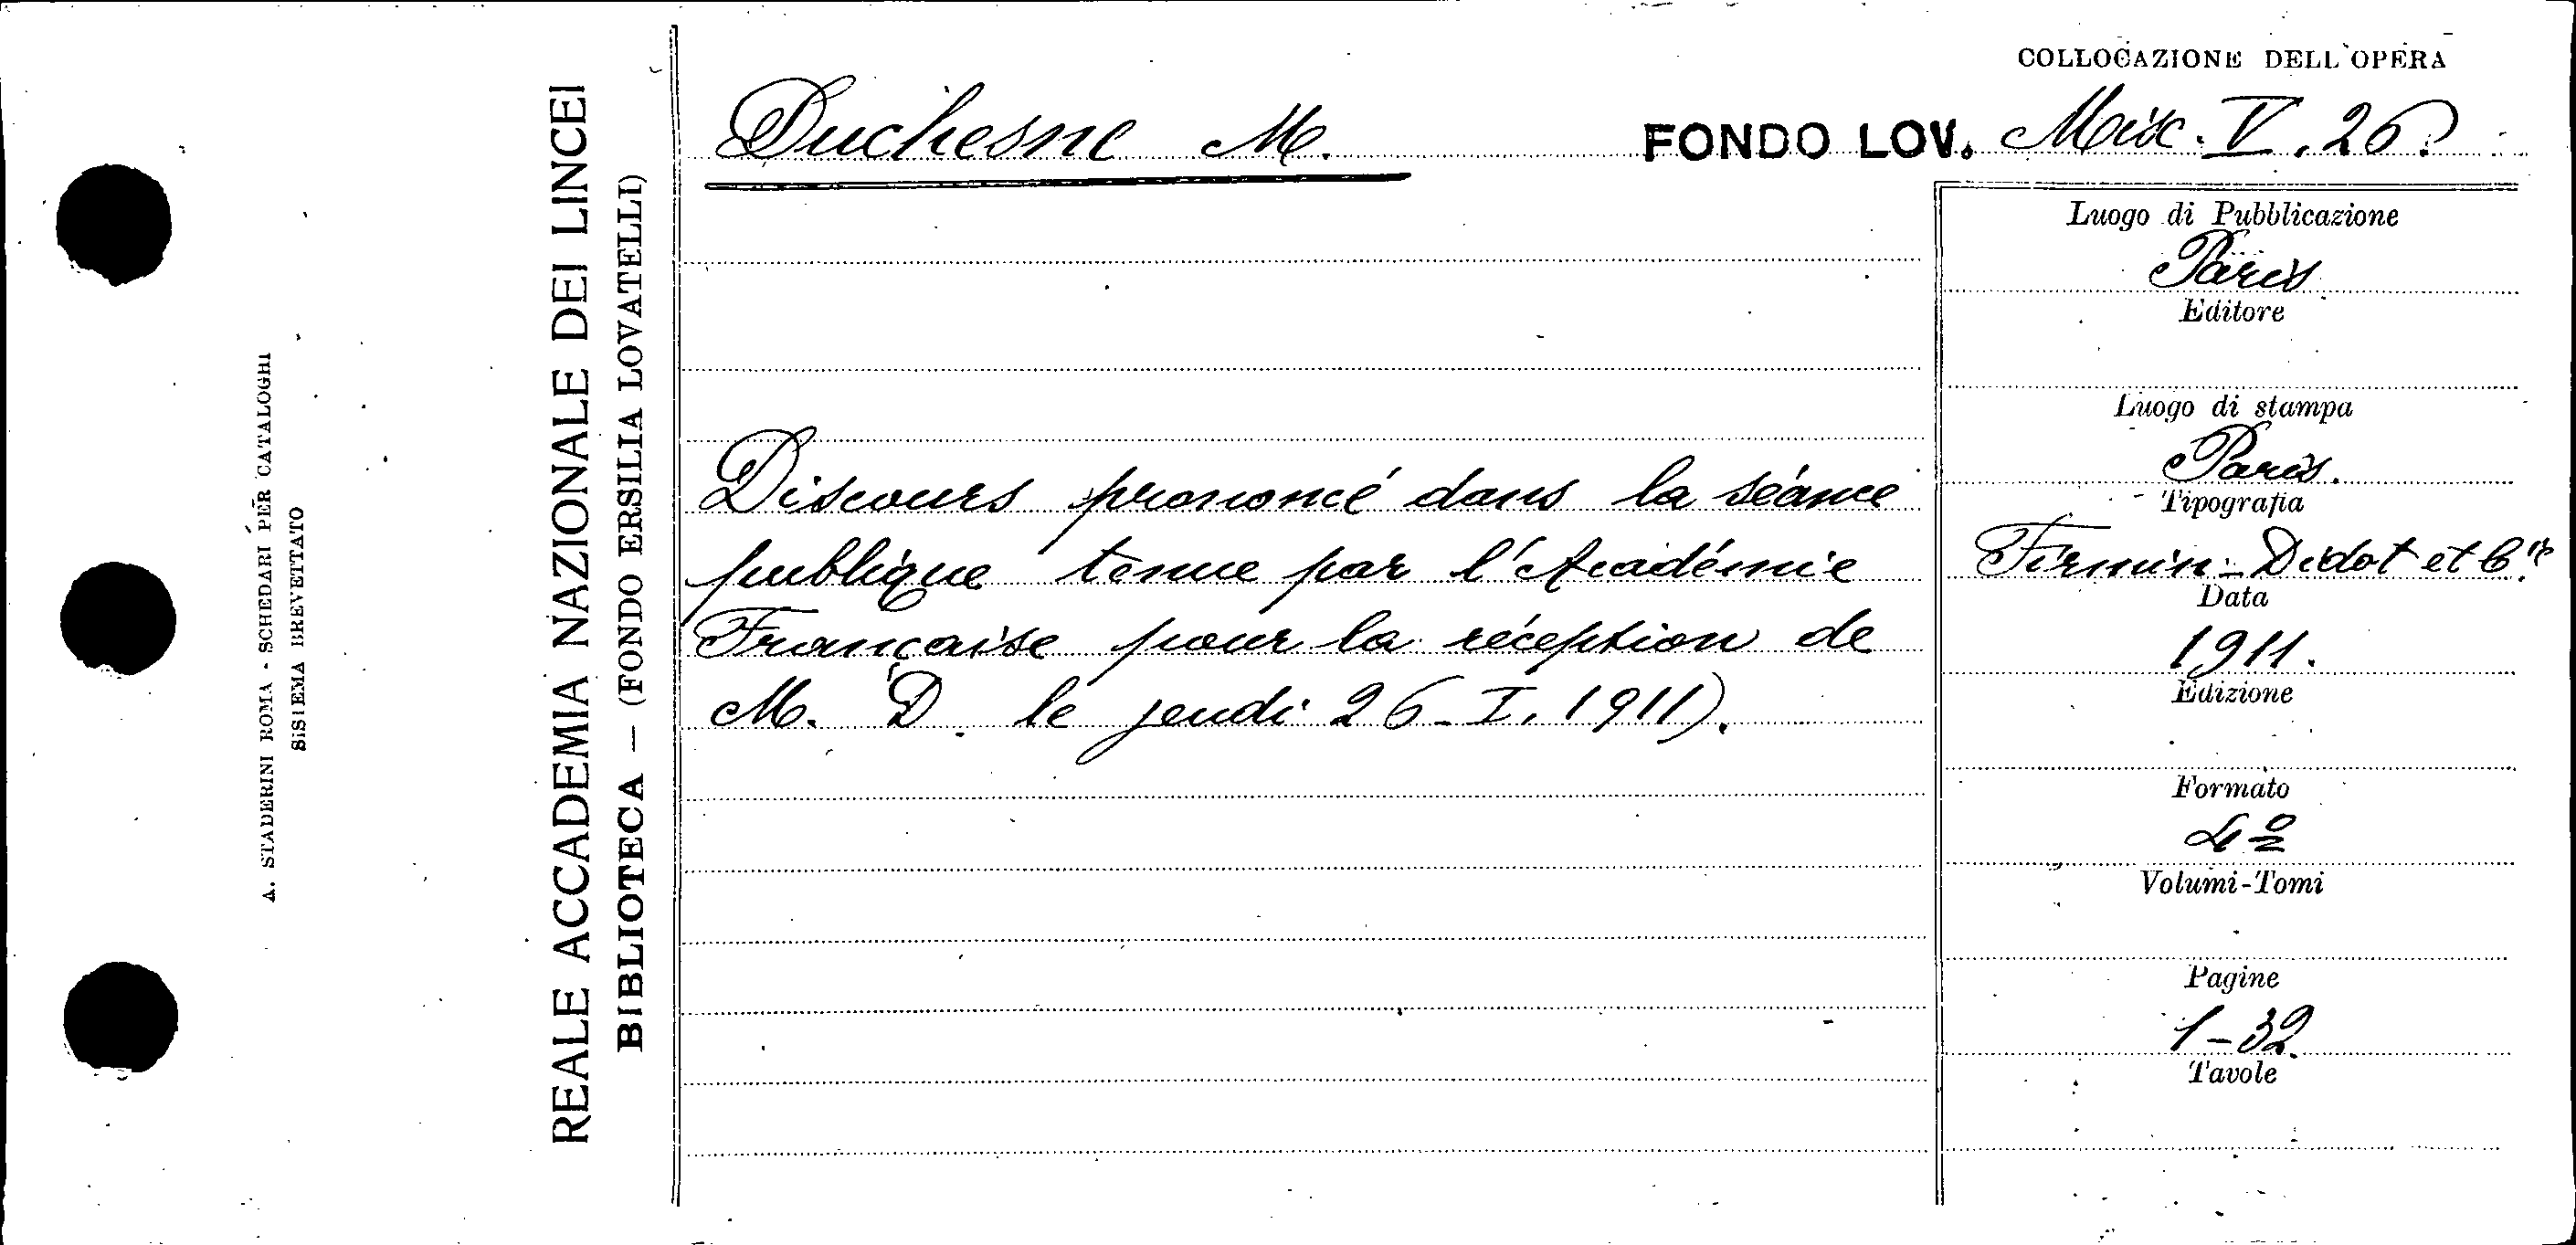 A. STADERINI ROMA - SCHEDARI PER CATALOGHI
SISTEMA BREVETTATO
REALE ACCADEMIA NAZIONALE DEI LINCEI
BIBLIOTECA — (FONDO ERSILIA LOVATELLI)
COLLOCAZIONE DELL'OPERA
Duchesne M.
FONDO LOV. Misc. V. 26.
Discours prononcé dans la séance
publique tenue par l'Académie
Française pour la réception de
M. D. le jeudi 26-I. 1911).
Luogo di Pubblicazione
Paris
Editore
Luogo di stampa
Paris.
Tipografia
Firmin-Didot et C.ie
Data
1911.
Edizione
Formato
4º
Volumi-Tomi
Pagine
1-32.
Tavole